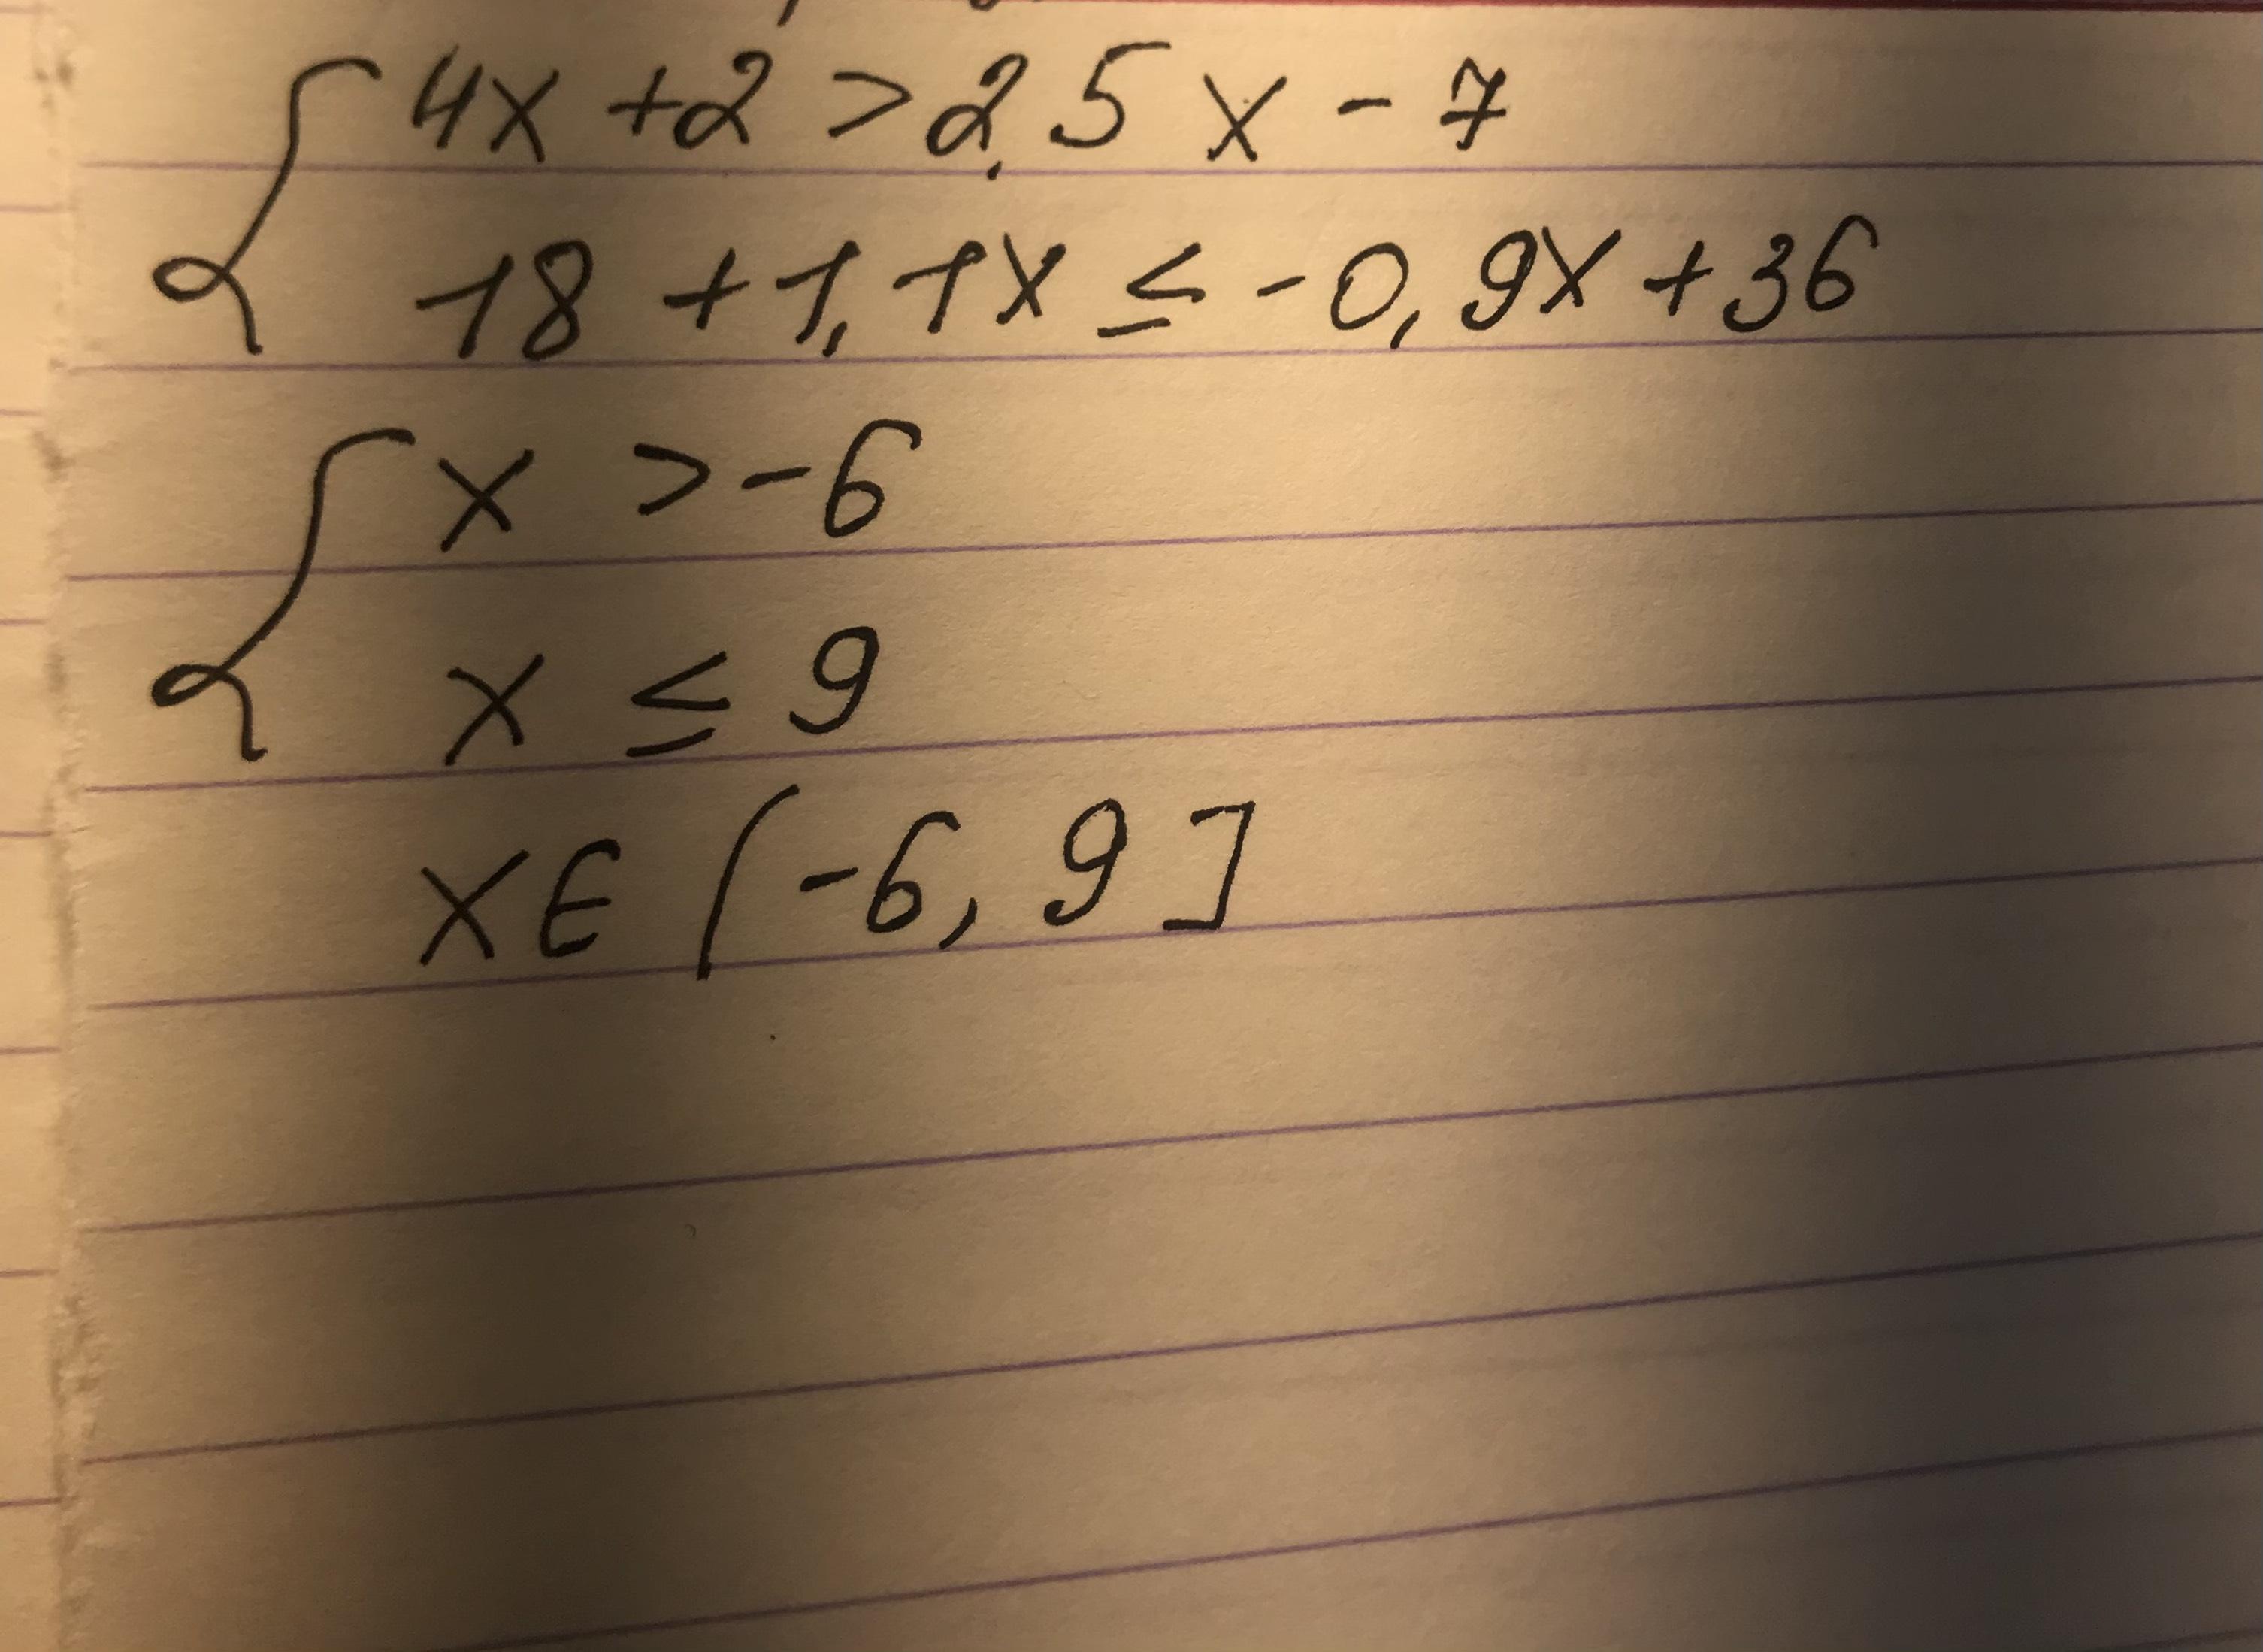 { 4x + 2 > 2,5x - 7
18 + 1,1x ≤ -0,9x + 36
{ x > -6
x ≤ 9
x ∈ (-6, 9]